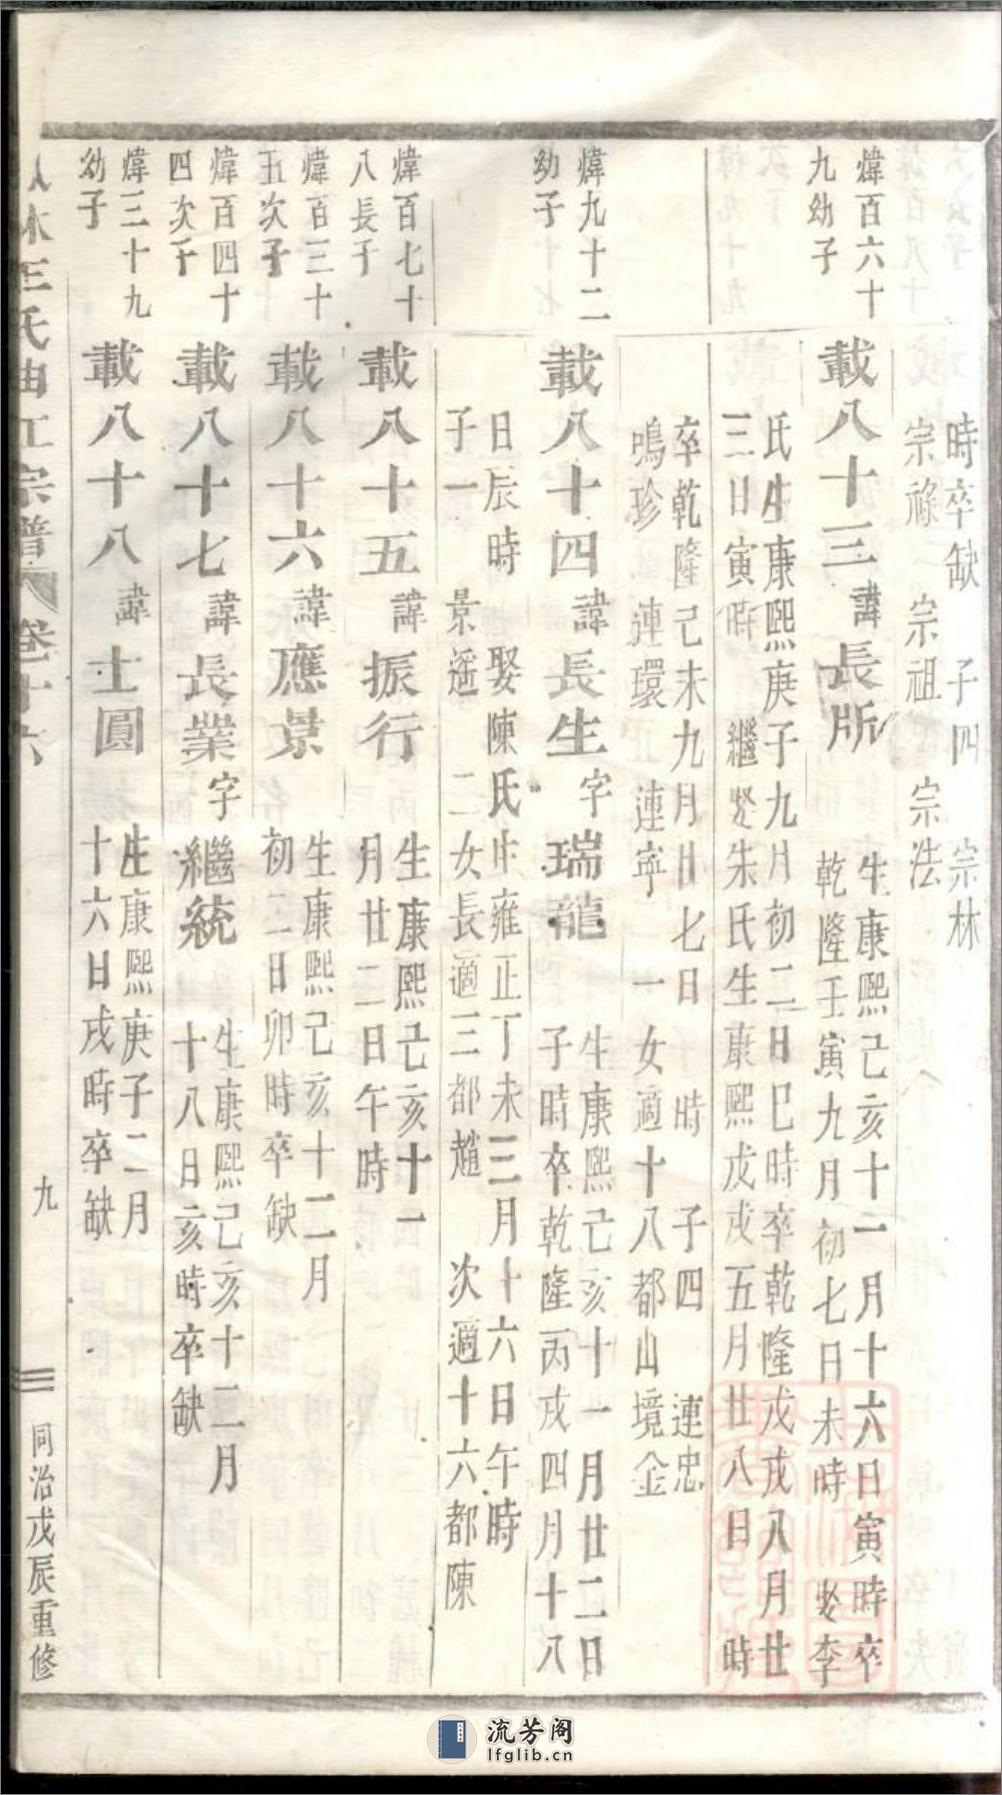 時卒缺 子四 宗林
宗祿 宗祖 宗法
煒百六十
九幼子
載八十三諱長版
生康熙己亥十二月十六日寅時卒
乾隆壬寅九月初七日未時 娶李
氏生康熙庚子九月初二日巳時卒乾隆戊戌八月廿
三日寅時 繼娶朱氏生康熙戊戌五月廿八日 時
卒乾隆己未九月廿七日 時 子四 連忠
鳴珍 連環 連寧 一女適十八都山境金
煒九十二
幼子
載八十四諱長生字瑞龍
生康熙己亥十一月廿二日
子時卒乾隆丙戌四月十八
日辰時 娶陳氏生雍正丁未三月十六日午時
子一 景遥 二女長適三都趙 次適十六都陳
煒百七十
八長子
載八十五諱振行
生康熙己亥十一
月廿二日午時
煒百三十
五次子
載八十六諱應景
生康熙己亥十二月
初二日卯時卒缺
煒百四十
四次子
載八十七諱長業字繼統
生康熙己亥十二月
十八日亥時卒缺
煒三十九
幼子
載八十八諱士圓
生康熙庚子二月
十六日戌時卒缺
王氏曲江宗譜 卷十六 九 同治戊辰重修
流芳阁
lfglib.cn